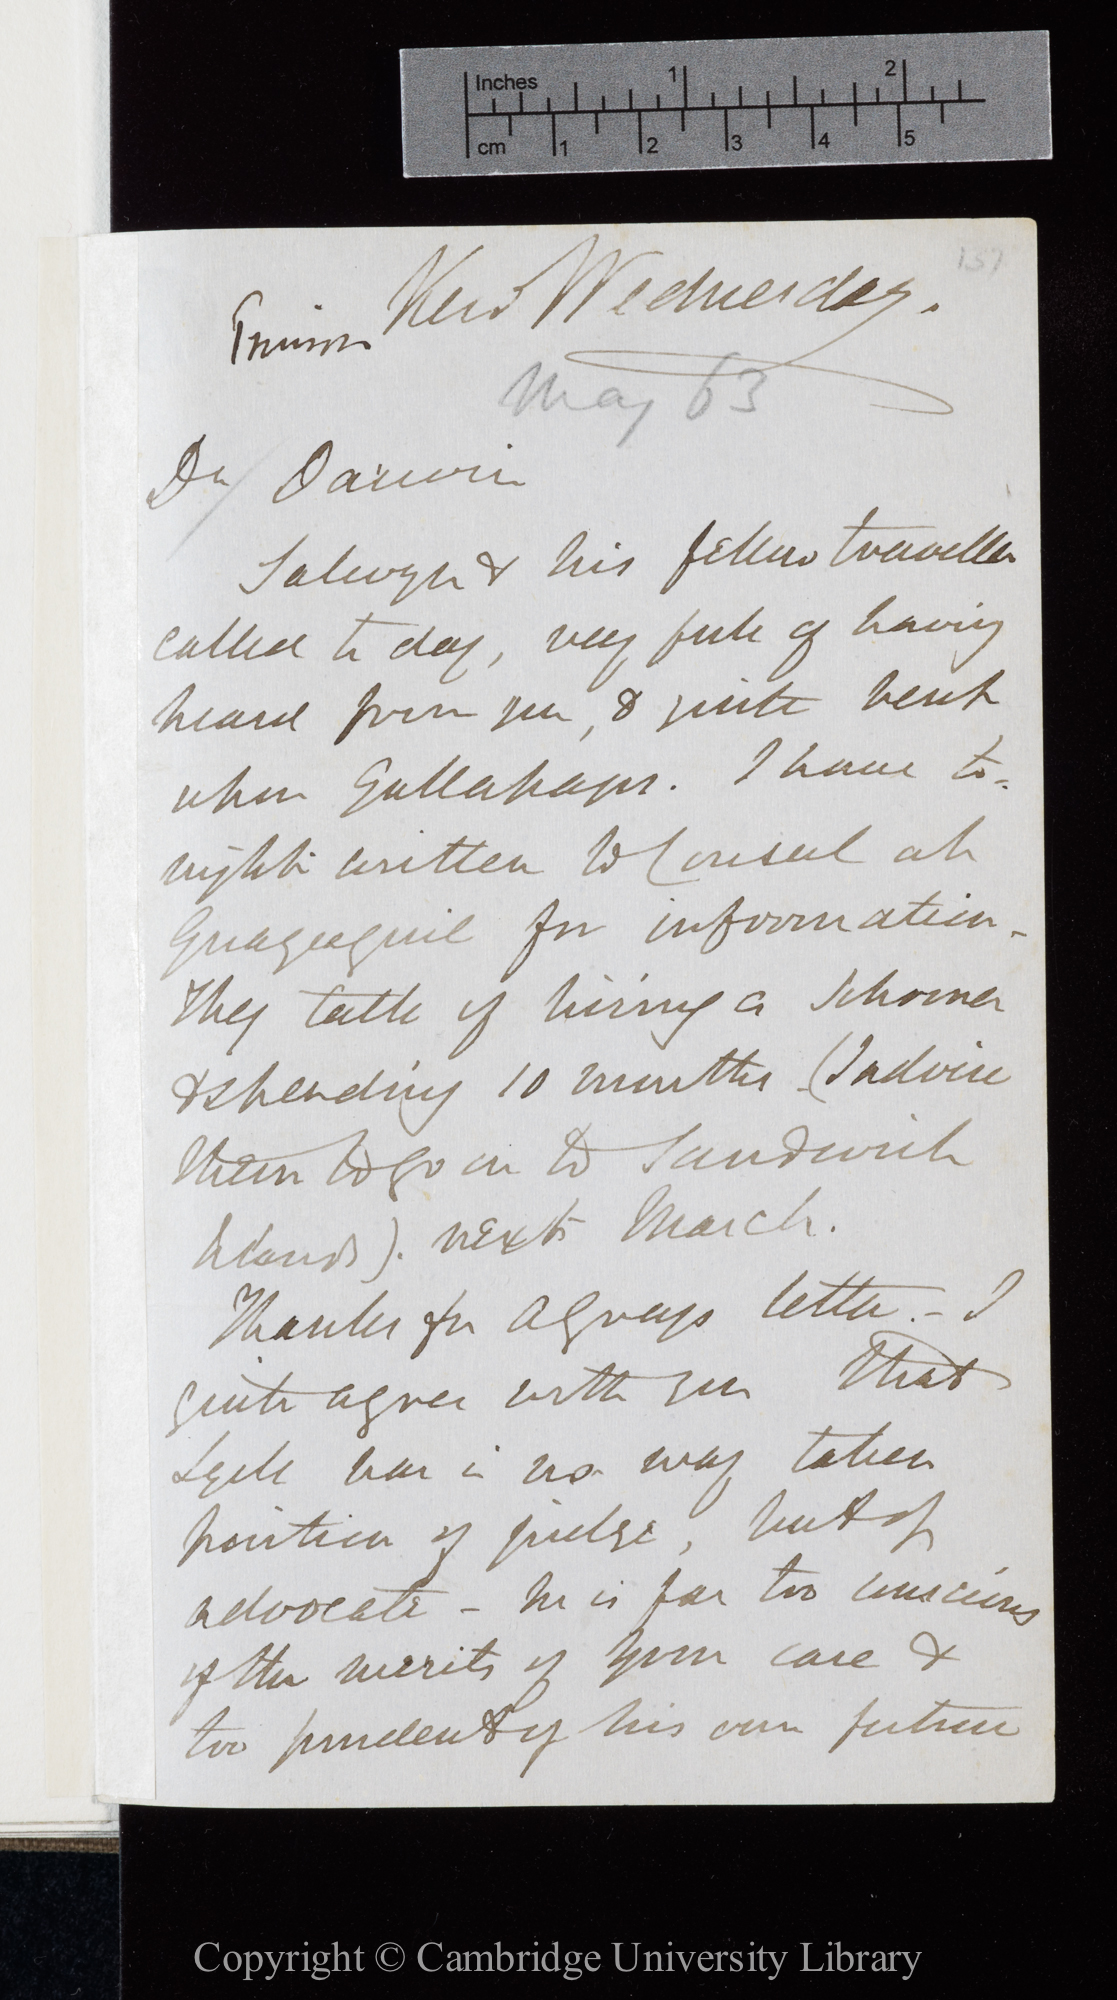 Inches 1 2
cm 1 2 3 4 5
157
Kew Wednesday.
May 63
Dr Darwin
Salwyn & his fellow traveller
called to day, very full of having
heard from you, & quite bent
upon Gallapagos. I have to-
night written to Consul at
Guayaquil for information -
They talk of hiring a Schooner
& spending 10 months (I advise
them to go on to Sandwich
Islands). next March.
Thanks for A Grays letter. - I
quite agree with you that
Lyell has in no way taken
position of judge, but of
advocate - he is far too conscious
of the merits of your case &
too prudent of his own future
Copyright © Cambridge University Library